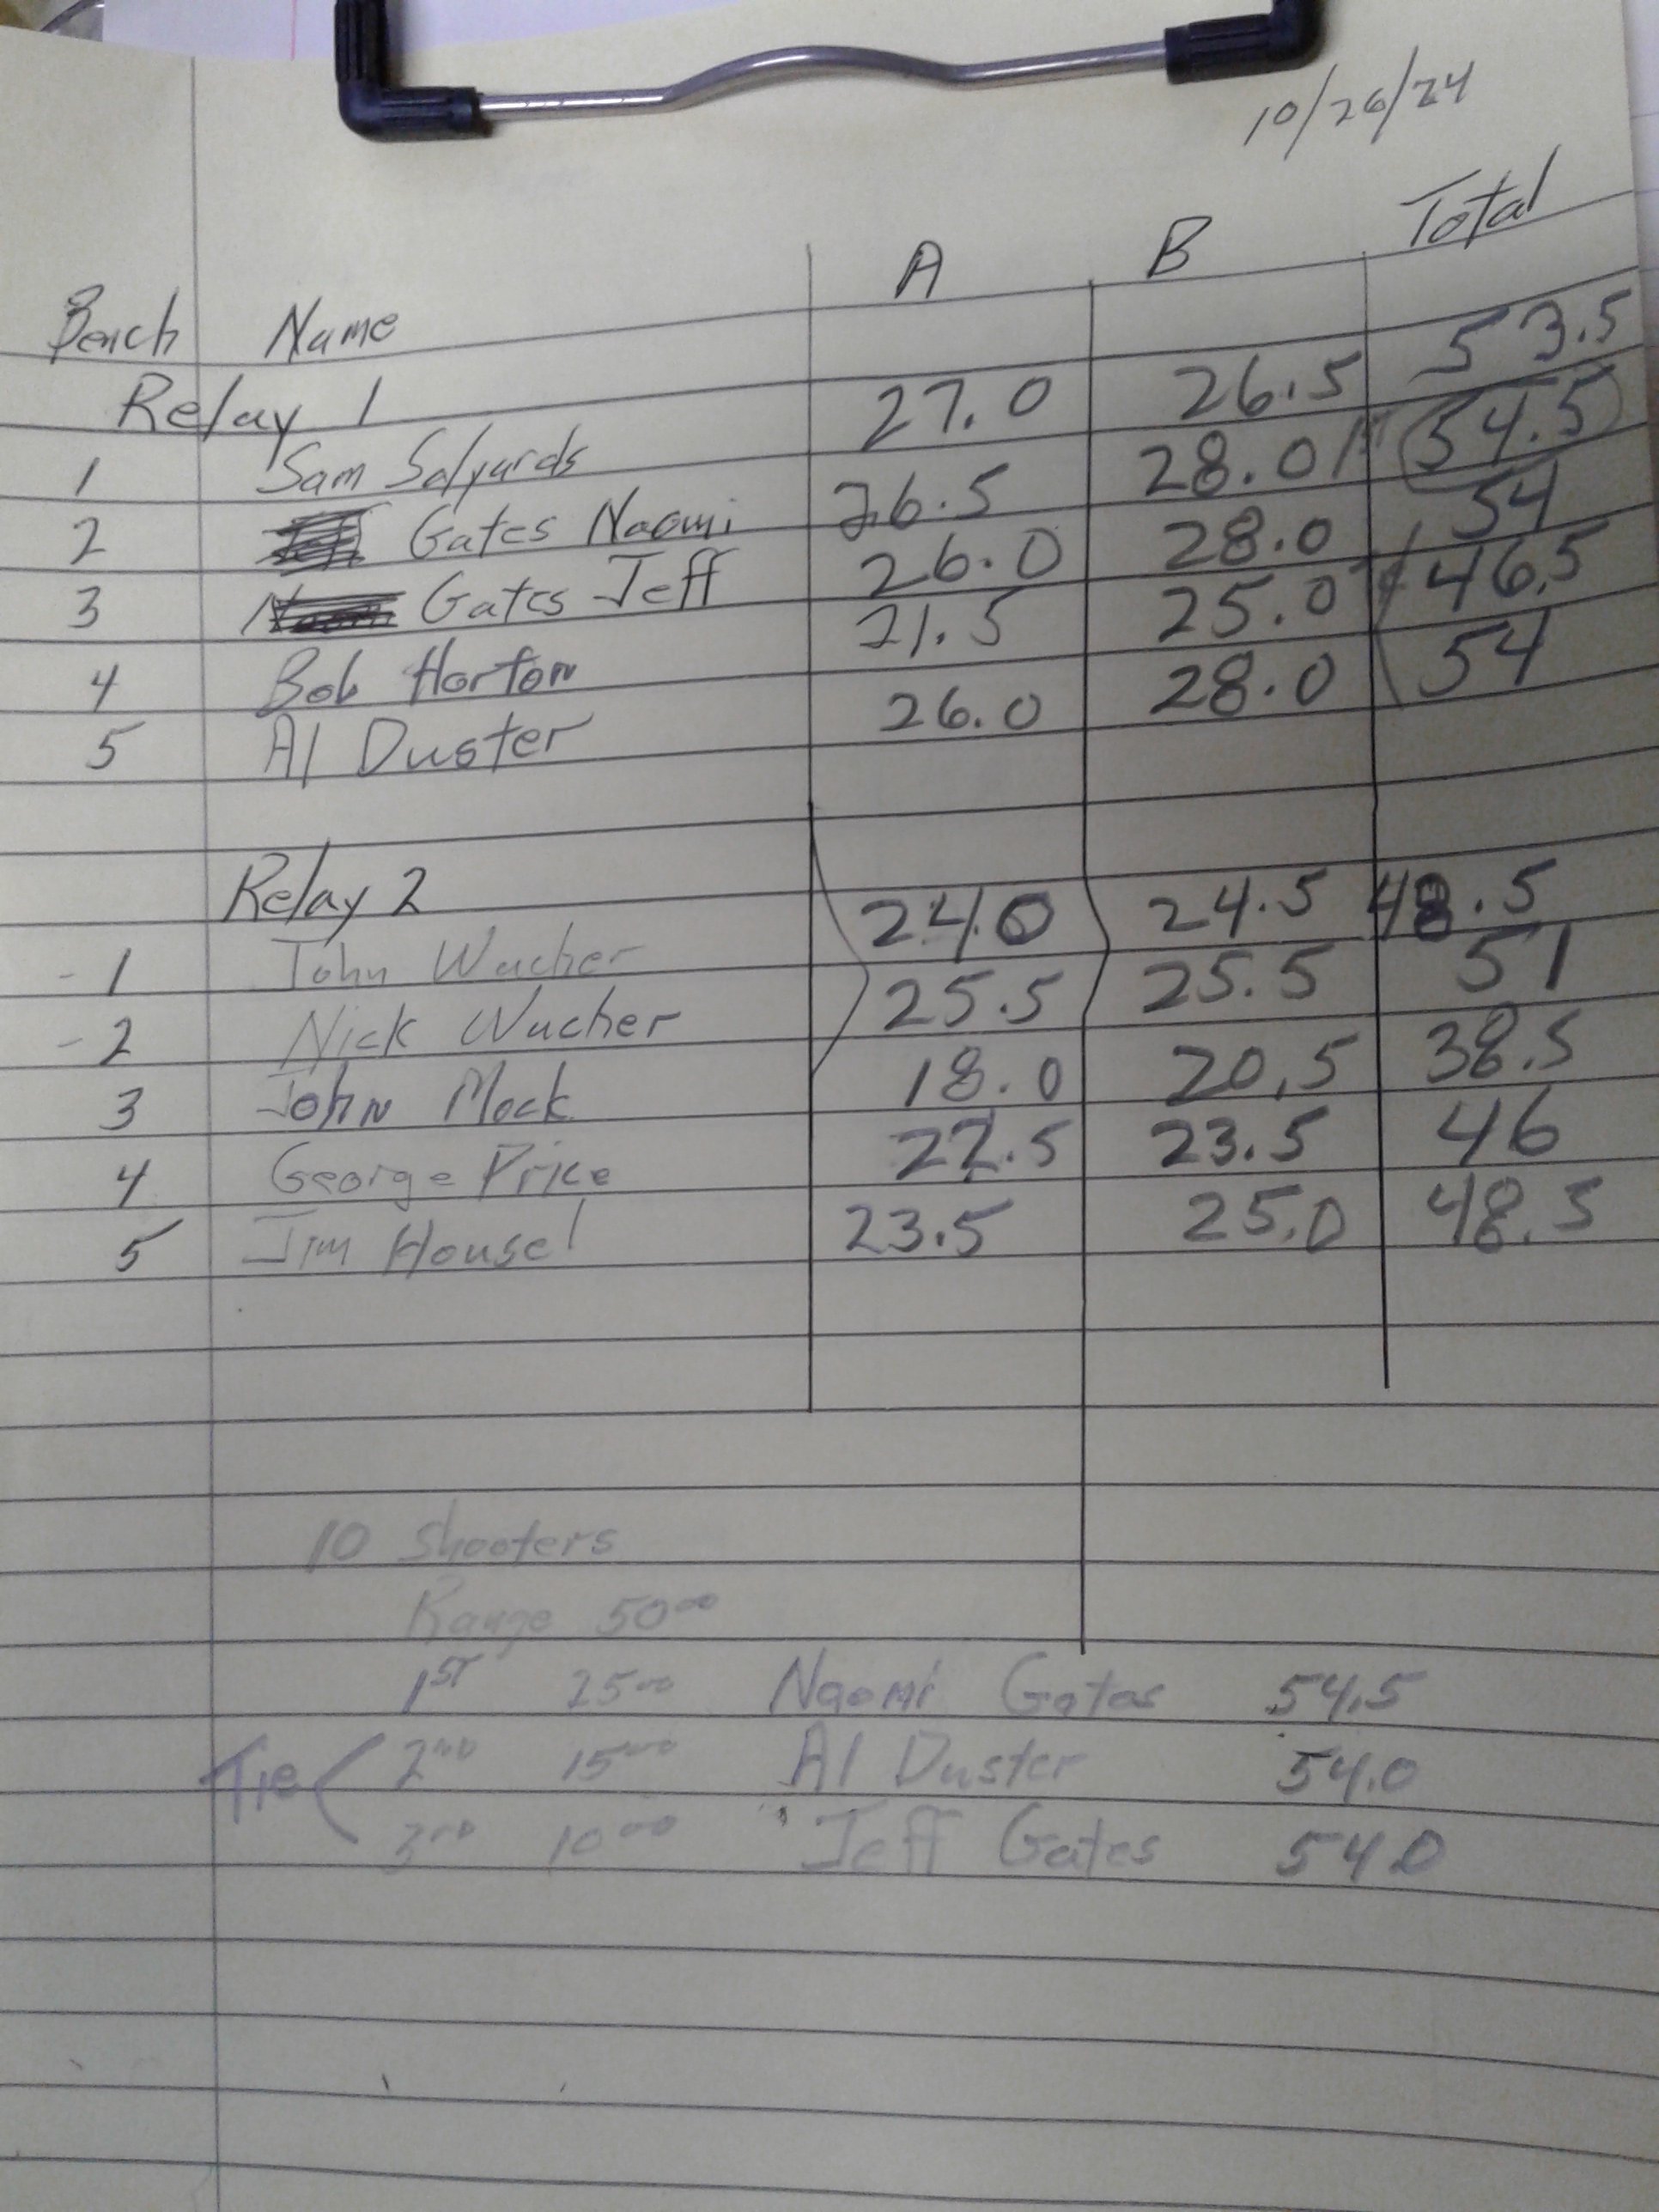 10/26/24
Bench Name A B Total
Relay 1
1 Sam Salyards 27.0 26.5 53.5
2 Gates Naomi 26.5 28.0 1st 54.5
3 Gates Jeff 26.0 28.0 54
4 Bob Horton 21.5 25.0 46.5
5 Al Duster 26.0 28.0 54
Relay 2
- 1 John Wucher 24.0 24.5 48.5
- 2 Nick Wucher 25.5 25.5 51
3 John Mock 18.0 20,5 38.5
4 George Price 22.5 23.5 46
5 Jim Housel 23.5 25.0 48.5
10 Shooters
Range 50⁰⁰
1ST 25⁰⁰ Naomi Gates 54.5
Tie 2ND 15⁰⁰ Al Duster 54.0
3RD 10⁰⁰ Jeff Gates 54.0